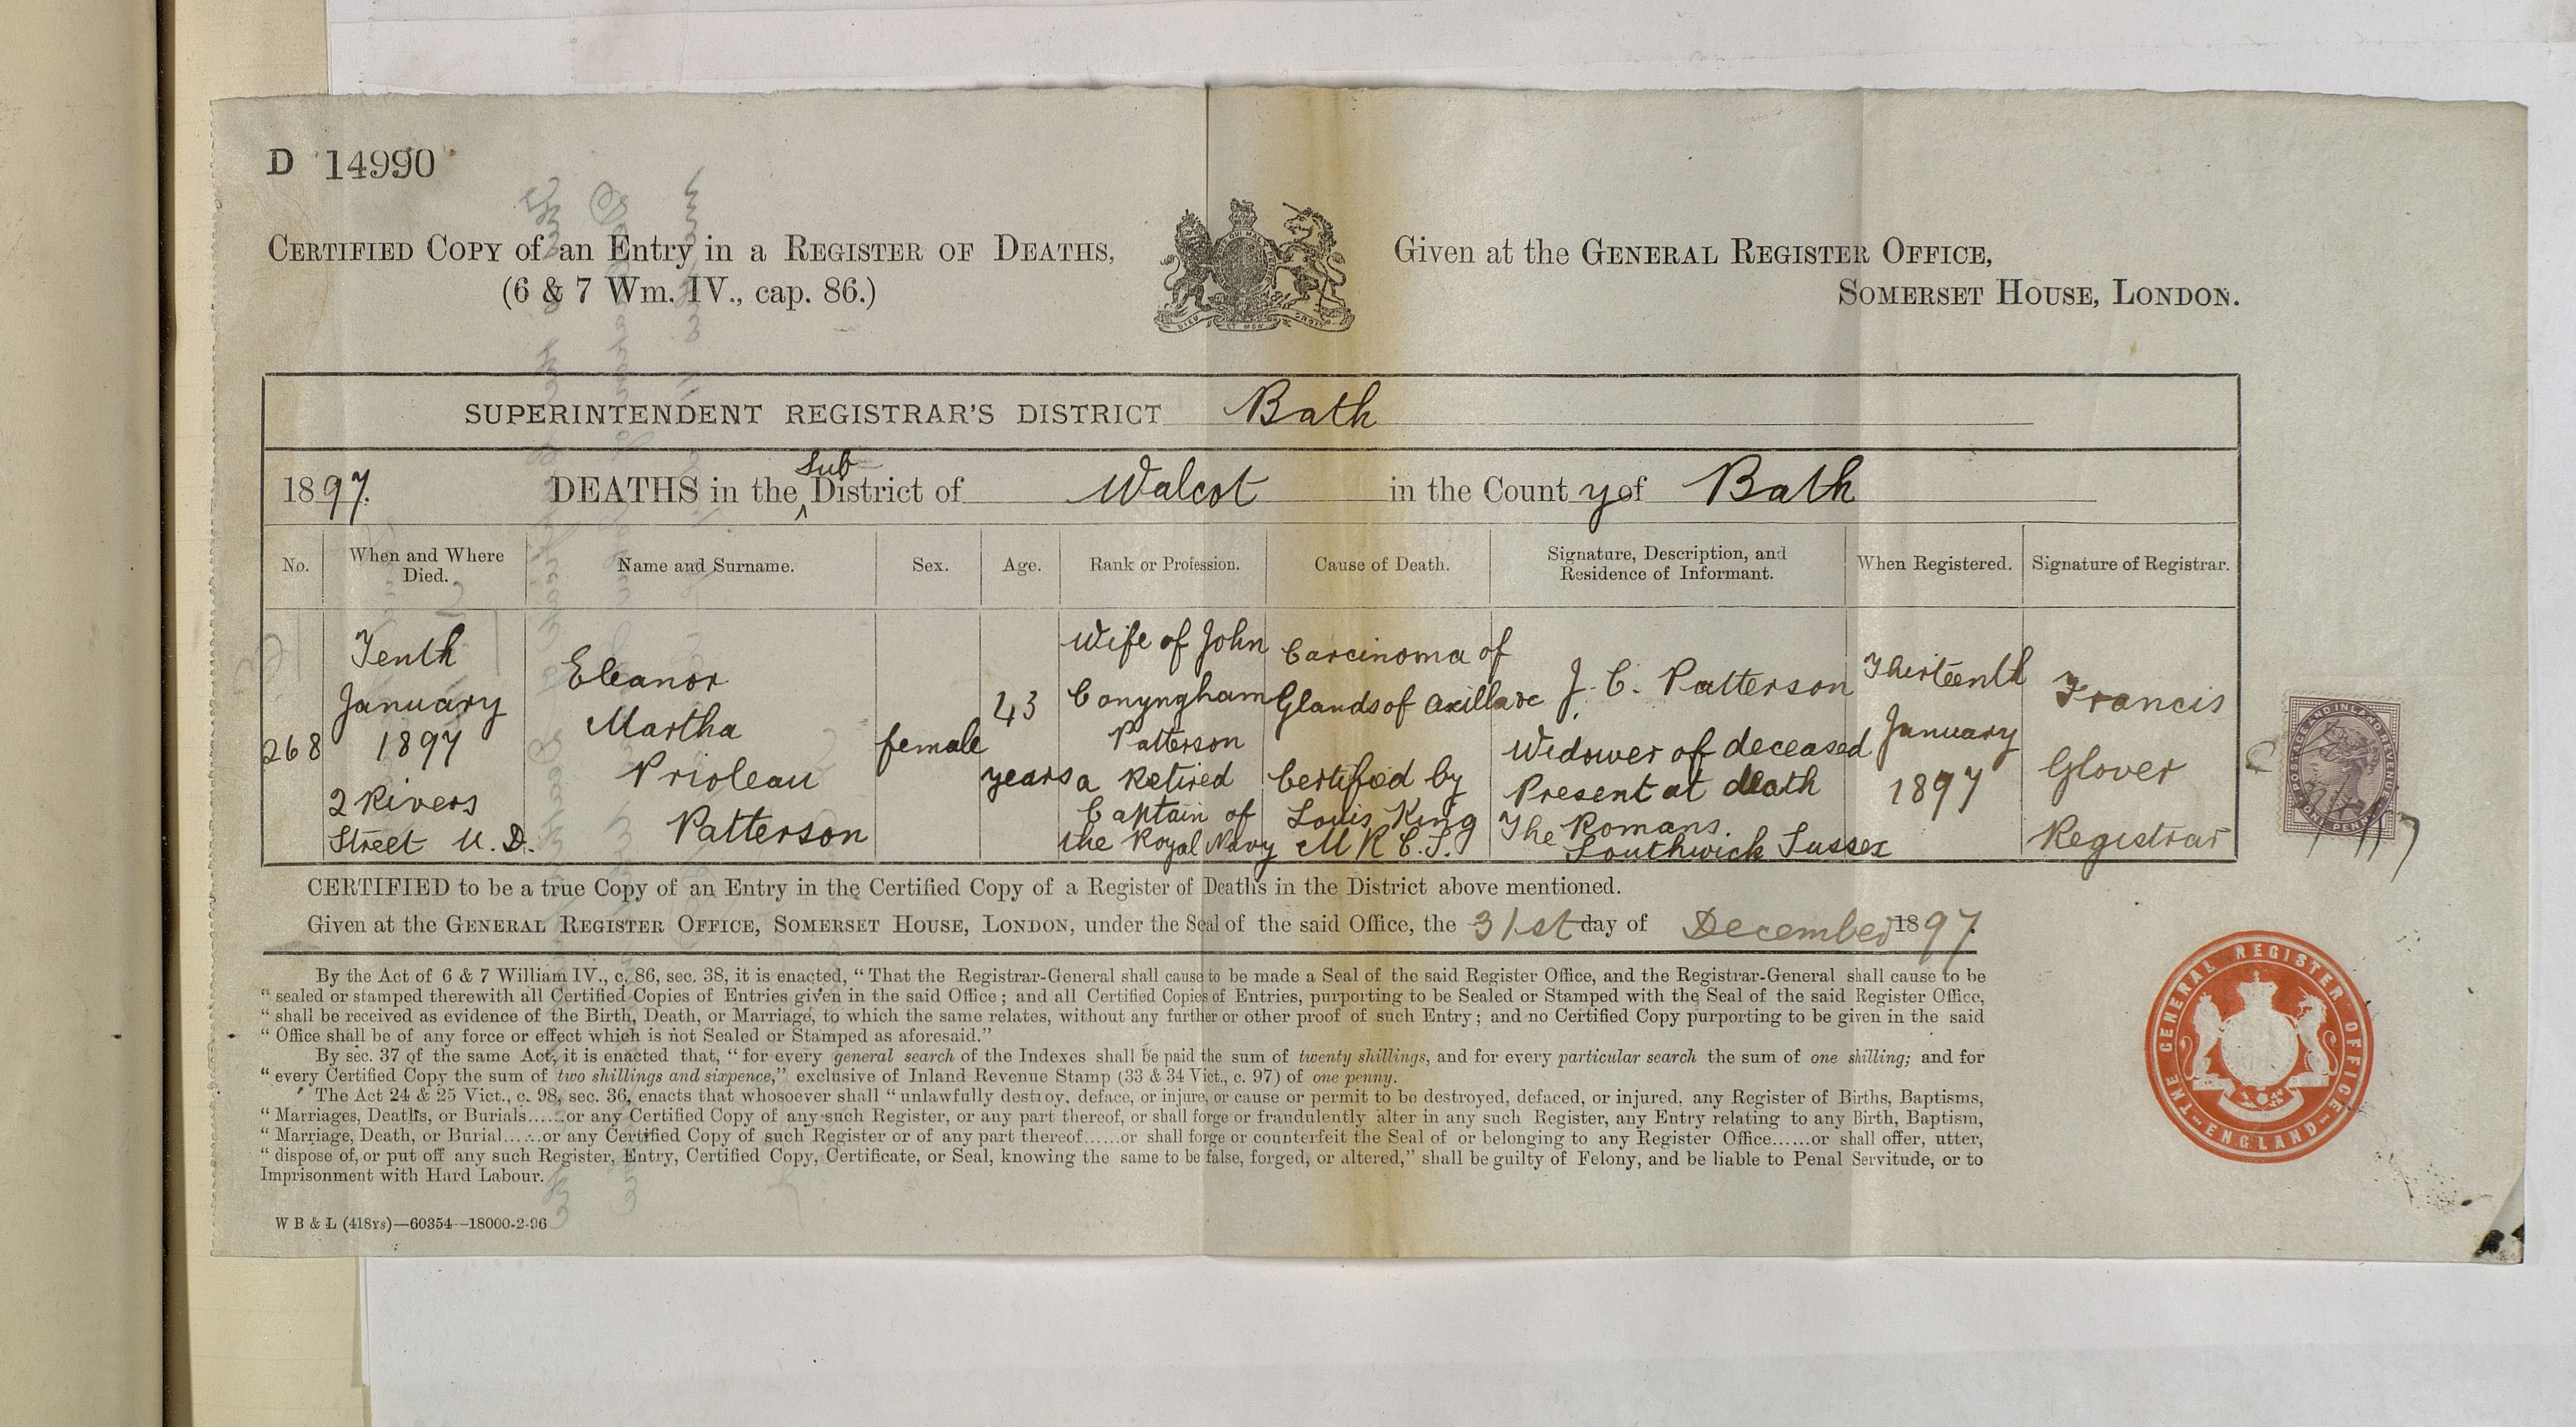 D 14990
CERTIFIED COPY of an Entry in a REGISTER OF DEATHS,
(6 & 7 Wm. IV., cap. 86.)
DIEU ET MON DROIT
Given at the GENERAL REGISTER OFFICE,
SOMERSET HOUSE, LONDON.
SUPERINTENDENT REGISTRAR'S DISTRICT Bath
1897. DEATHS in the Sub District of Walcot in the County of Bath
No.
When and Where
Died.
Name and Surname.
Sex.
Age.
Rank or Profession.
Cause of Death.
Signature, Description, and
Residence of Informant.
When Registered.
Signature of Registrar.
268
Tenth
January
1897
2 Rivers
Street U. D.
Eleanor
Martha
Prioleau
Patterson
female
43
years
Wife of John
Conyngham
Patterson
a Retired
Captain of
the Royal Navy
Carcinoma of
Glands of axillae
Certified by
Louis King
M R C S.
J. C. Patterson
Widower of deceased
Present at death
The Romans.
Southwick Sussex
Thirteenth
January
1897
Francis
Glover
Registrar
POSTAGE AND INLAND REVENUE
ONE PENNY
CERTIFIED to be a true Copy of an Entry in the Certified Copy of a Register of Deaths in the District above mentioned.
Given at the GENERAL REGISTER OFFICE, SOMERSET HOUSE, LONDON, under the Seal of the said Office, the 31st day of December 1897.
By the Act of 6 & 7 William IV., c. 86, sec. 38, it is enacted, "That the Registrar-General shall cause to be made a Seal of the said Register Office, and the Registrar-General shall cause to be
"sealed or stamped therewith all Certified Copies of Entries given in the said Office; and all Certified Copies of Entries, purporting to be Sealed or Stamped with the Seal of the said Register Office,
"shall be received as evidence of the Birth, Death, or Marriage, to which the same relates, without any further or other proof of such Entry; and no Certified Copy purporting to be given in the said
"Office shall be of any force or effect which is not Sealed or Stamped as aforesaid."
By sec. 37 of the same Act, it is enacted that, "for every general search of the Indexes shall be paid the sum of twenty shillings, and for every particular search the sum of one shilling; and for
"every Certified Copy the sum of two shillings and sixpence," exclusive of Inland Revenue Stamp (33 & 34 Vict., c. 97) of one penny.
The Act 24 & 25 Vict., c. 98, sec. 36, enacts that whosoever shall "unlawfully destroy, deface, or injure, or cause or permit to be destroyed, defaced, or injured, any Register of Births, Baptisms,
"Marriages, Deaths, or Burials......or any Certified Copy of any such Register, or any part thereof, or shall forge or fraudulently alter in any such Register, any Entry relating to any Birth, Baptism,
"Marriage, Death, or Burial......or any Certified Copy of such Register or of any part thereof......or shall forge or counterfeit the Seal of or belonging to any Register Office......or shall offer, utter,
"dispose of, or put off any such Register, Entry, Certified Copy, Certificate, or Seal, knowing the same to be false, forged, or altered," shall be guilty of Felony, and be liable to Penal Servitude, or to
Imprisonment with Hard Labour.
W B & L (418YS)—60354—18000-2-96
THE GENERAL REGISTER OFFICE
ENGLAND